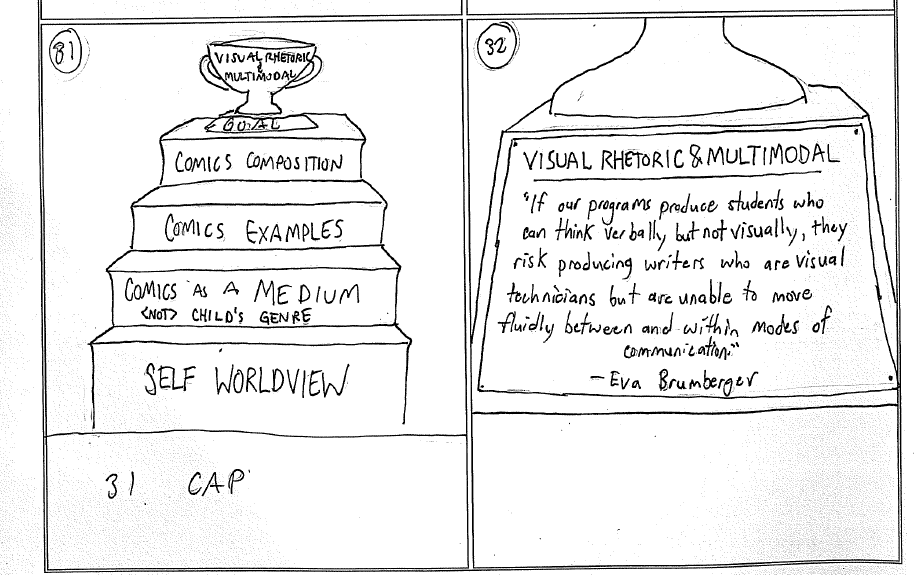 31
VISUAL RHETORIC
&
MULTIMODAL
GOAL
COMICS COMPOSITION
COMICS EXAMPLES
COMICS AS A MEDIUM
<NOT> CHILD'S GENRE
SELF WORLDVIEW
31 CAP
32
VISUAL RHETORIC & MULTIMODAL
"If our programs produce students who
can think verbally but not visually, they
risk producing writers who are visual
technicians but are unable to move
fluidly between and within modes of
communication."
- Eva Brumberger